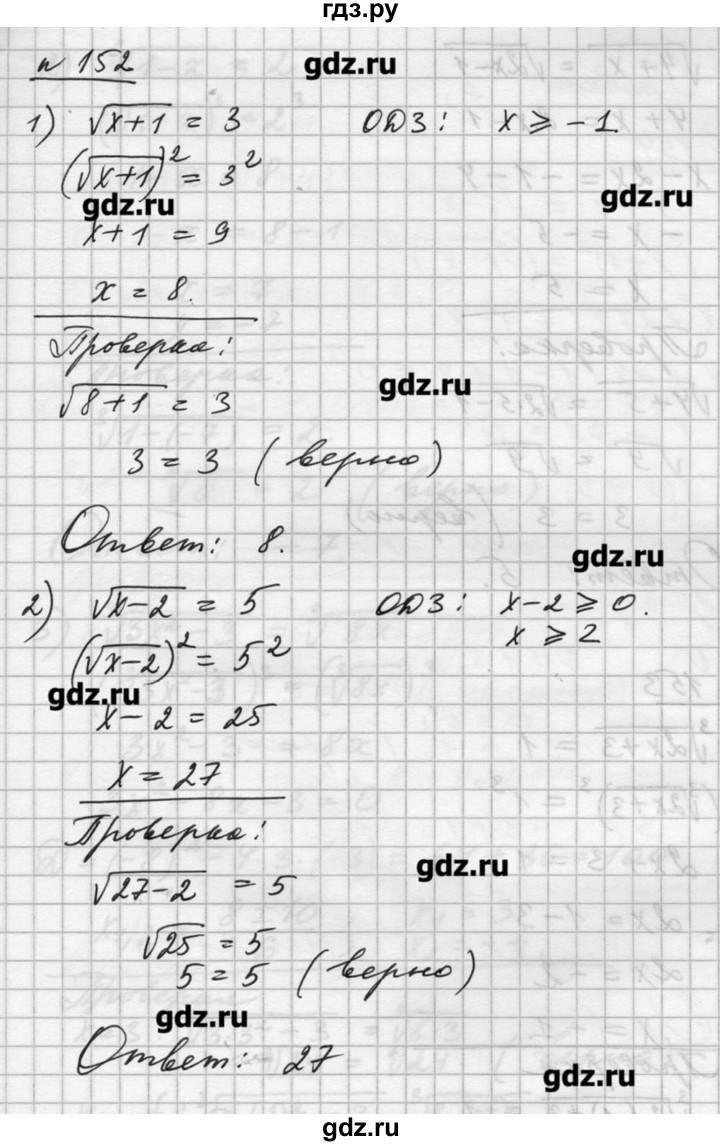 гдз.ру
n 152
gdz.ru
1) √(x+1) = 3 ОДЗ: x ⩾ -1.
(√(x+1))² = 3²
gdz.ru gdz.ru
x+1 = 9
x = 8.
Проверка:
gdz.ru
√(8+1) = 3
3 = 3 (верно)
Ответ: 8.
gdz.ru
2) √(x-2) = 5 ОДЗ: x-2 ⩾ 0.
x ⩾ 2
(√(x-2))² = 5²
gdz.ru
x-2 = 25
x = 27
Проверка:
gdz.ru
√(27-2) = 5
√25 = 5
5 = 5 (верно)
gdz.ru
Ответ: 27
gdz.ru
gdz.ru